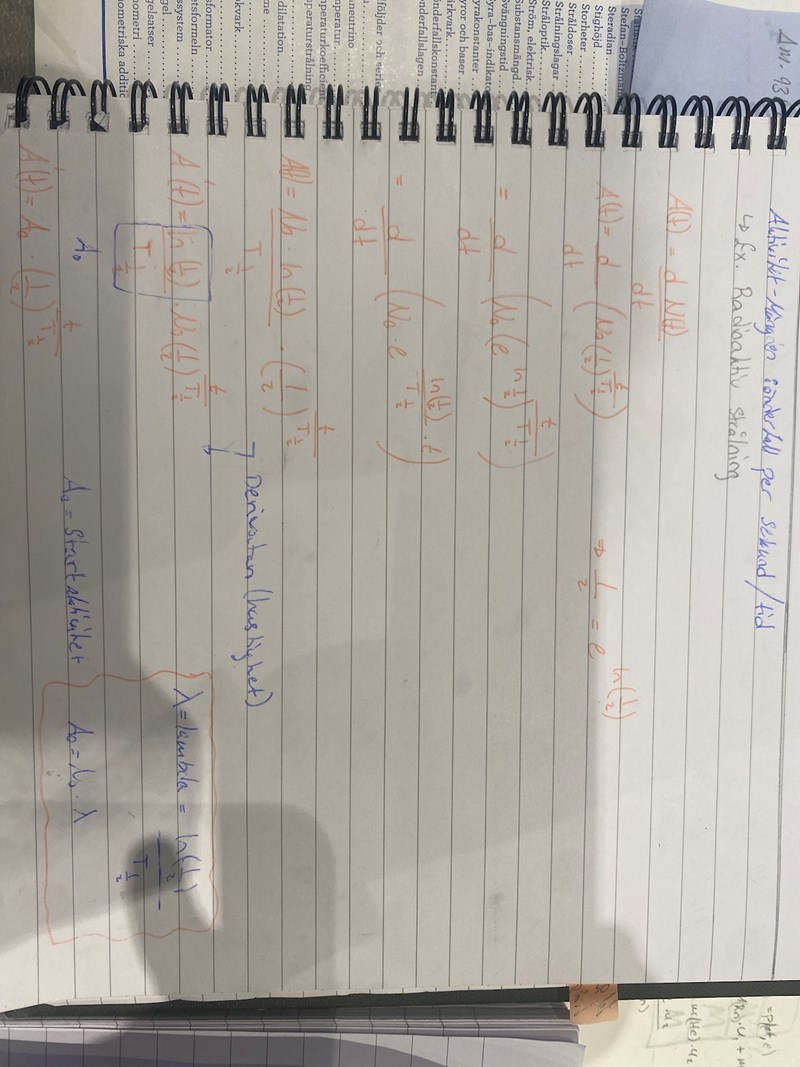 Am. 93
Aktivitet - Mängden sönderfall per sekund/tid
↳ Ex. Radioaktiv strålning
A(t) = d N(t) / dt
A(t) = d/dt (N₀(1/2)^(t/T½)) ⇒ 1/2 = e^(ln(1/2))
= d/dt (N₀(e^(ln 1/2))^(t/T½))
= d/dt (N₀ · e^(ln(1/2)/T½ · t))
A(t) = N₀ · ln(1/2) / T½ · (1/2)^(t/T½)
→ Derivatan (hastighet)
A'(t) = ln(1/2)/T½ · N₀(1/2)^(t/T½)
λ = lambda = ln(1/2)/T½
A₀
A₀ = Startaktivitet
A₀ = N₀ · λ
A'(t) = A₀ · (1/2)^(t/T½)
Steradian
Stefan-Boltzmann
Stighöjd
Storheter
Stråldoser
Strålningslagar
Stråloptik
Ström, elektrisk
ubstansmängd
vängningstid
yra-bas-indikato
yrakonstanter
yror och baser
önderfallskonstan
önderfallslagen
ärkvark
följder och serier
aneutrino
mperatur
mperaturkoefficien
mperaturstrålning
dilatation
kvark
sformator
etsformeln
ssystem
gel
gelsatser
nometriska additio